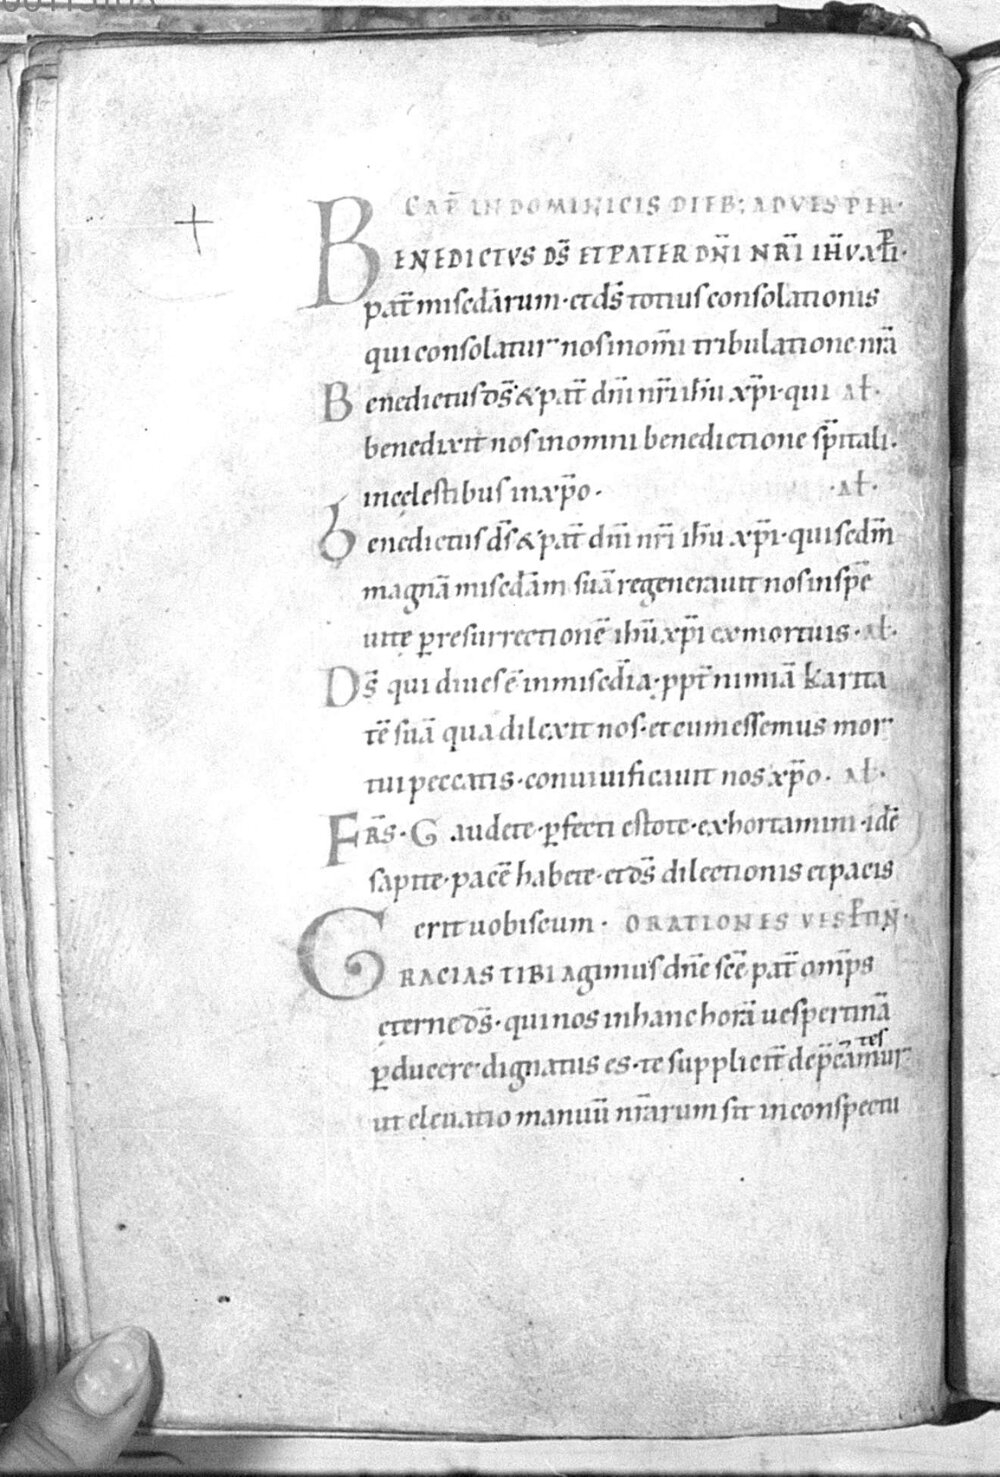 CAP̄ IN DOMINICIS DIEB; AD VESPER·
BENEDICTVS DS̄ ET PATER DN̄I NR̄I IH̄V XP̄I·
pat̄ misc̄darum· et ds̄ totius consolationis
qui consolatur nos in om̄i tribulatione nr̄a
Benedictus ds̄ & pat̄ dn̄i nr̄i ih̄u xp̄i· qui al̄·
benedixit nos in omni benedictione sp̄itali·
in cęlestibus in xp̄o· ·al̄·
Benedictus ds̄ & pat̄ dn̄i nr̄i ih̄u xp̄i· qui sed̄m
magnā misc̄dam suā regenerauit nos in spē
uitę ꝑ resurrectionē ih̄u xp̄i ex mortuis· al̄·
Ds̄ qui diues ē in misc̄dia· ppt̄ nimiā karita
tē suā qua dilexit nos· et cum essemus mor
tui peccatis· conuiuificauit nos xp̄o· al̄·
FR̄S· Gaudete· ꝑfecti estote· exhortamini· idē
sapite· pacē habete· et ds̄ dilectionis et pacis
erit uobiscum· ORATIONES VESP̄TIN̄·
GRACIAS TIBI Agimus dn̄e sc̄e pat̄ om̄ps
ęterne ds̄· qui nos in hanc horā uespertinā
ꝑducere dignatus es· te supplicit̄ dep̄cām̄ur tes
ut eleuatio manuū nr̄arum sit in conspectu